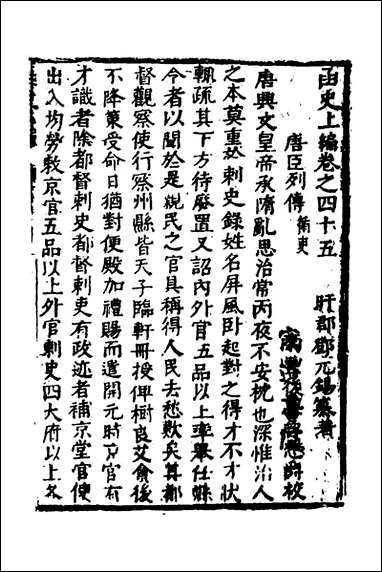 函史上編卷之四十五
盱郡鄧元錫纂著
唐臣列傳 循吏
校
唐興文皇帝承隋亂思治常丙夜不安枕也深惟治人
之本莫重於刺史錄姓名屏風卧起對之得才不才狀
輒疏其下方待廢置又詔內外官五品以上率舉任縣
令者以聞於是親民之官具稱得人民去愁歎矣其都
督觀察使行察州縣皆天子臨軒冊授俾樹良艾貪後
不降策受命日猶對便殿加禮賜而遣開元時京官有
才識者除都督刺史都督刺史有政迹者補京堂官使
出入均勞敕京官五品以上外官刺史四大府以上各